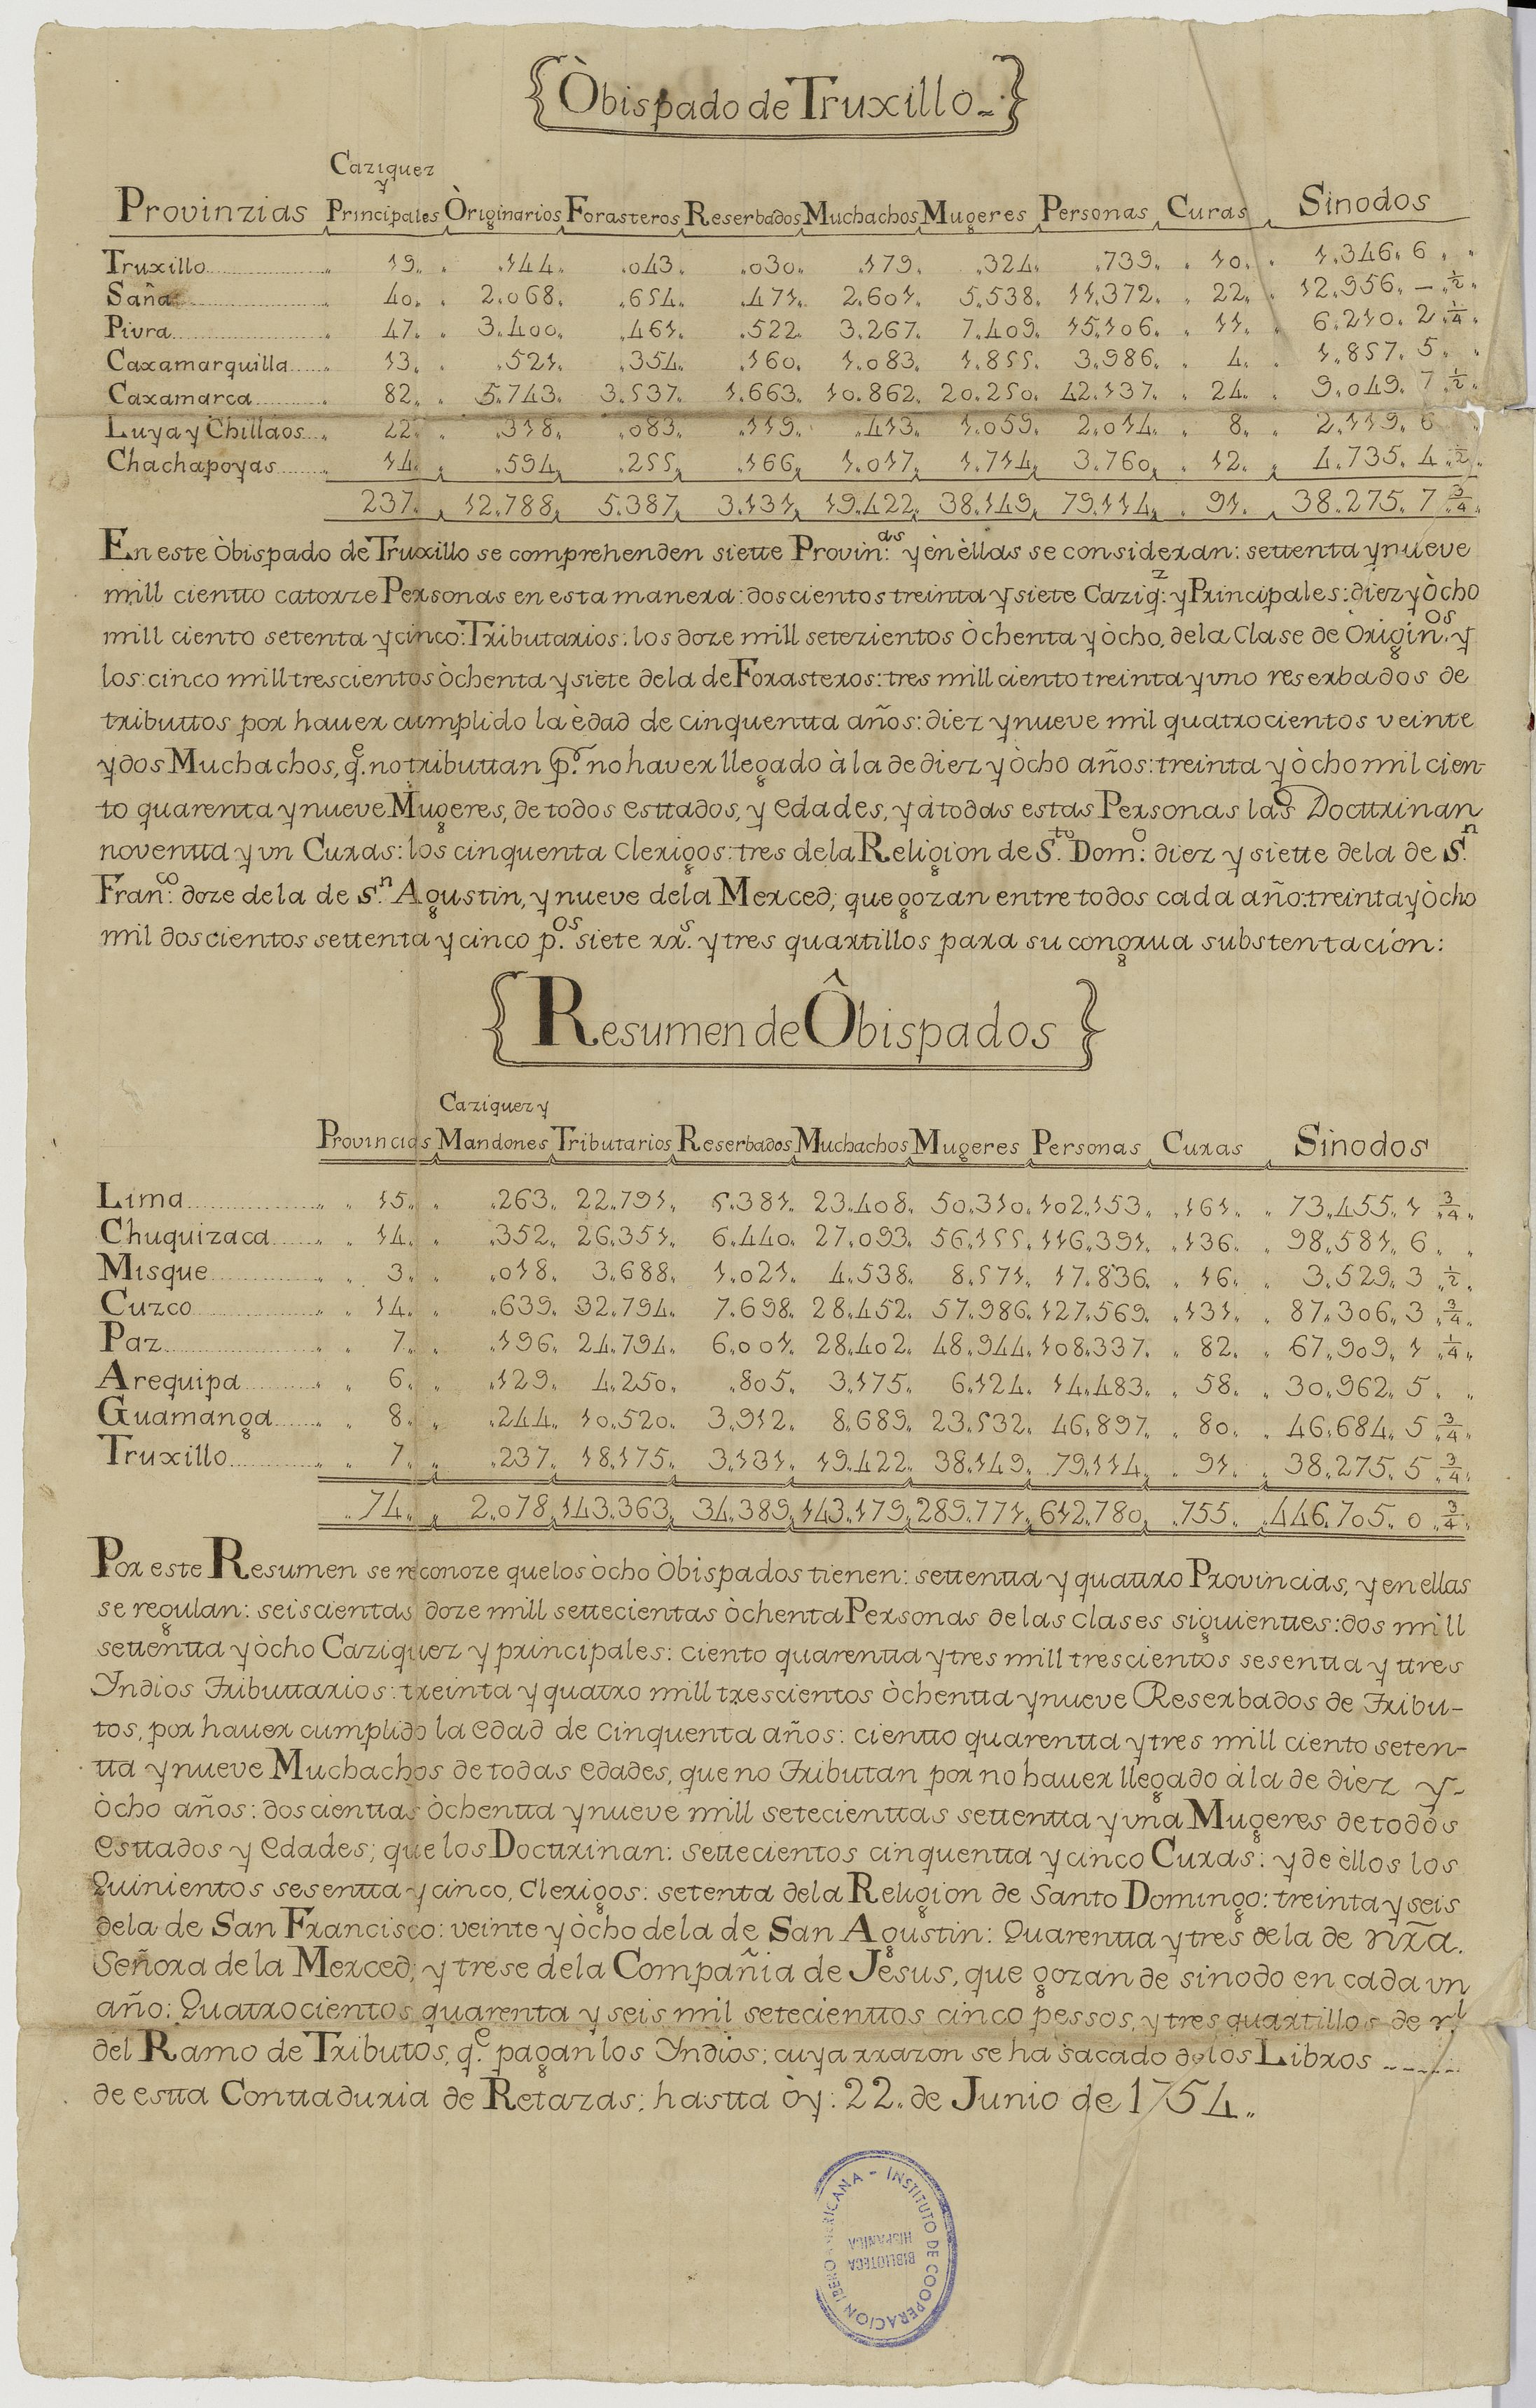 Òbispado de Truxillo
Caziquez
y
Provinzias Principales Òriginarios Forasteros Reserbados Muchachos Mugeres Personas Curas Sinodos
Truxillo 19. .144. .043. .030. .179. .324. .739. 10. 1.346. 6
Saña 40. 2.068. .654. .471. 2.601. 5.538. 11.372. 22. 12.956. – ½
Piura 47. 3.400. .461. .522. 3.267. 7.409. 15.106. 11. 6.210. 2 ¼
Caxamarquilla 13. .521. .354. .160. 1.083. 1.855. 3.986. 4. 1.857. 5
Caxamarca 82. 5.743. 3.537. 1.663. 10.862. 20.250. 42.137. 24. 9.049. 7 ½
Luya y Chillaos 22. .318. .083. .119. .413. 1.059. 2.014. 8. 2.119. 6
Chachapoyas 14. .594. .255. .166. 1.017. 1.714. 3.760. 12. 4.735. 4 ½
237. 12.788. 5.387. 3.131. 19.422. 38.149. 79.114. 91. 38.275. 7 ¾
En este Òbispado de Truxillo se comprehenden siette Provin.as y èn èllas se consideran: settenta y nueve
mill cientto catorze Personas en esta manera: doscientos treinta y siete Caziq.z y Principales: diez y òcho
mill ciento setenta y cinco: Tributarios: los doze mill setezientos òchenta y òcho, de la Clase de Origin.os y
los: cinco mill trescientos òchenta y siete de la de Forasteros: tres mill ciento treinta y vno reserbados de
tributtos por hauer cumplido la èdad de cinquentta años: diez y nueve mil quatrocientos veinte
y dos Muchachos, q.e no tributtan p.r no haver llegado à la de diez y òcho años: treinta y òcho mil cien-
to quarenta y nueve Mugeres, de todos esttados, y edades, y à todas estas Personas las Docttrinan
noventta y vn Curas: los cinquenta Clerigos: tres de la Religion de S.to Dom.o diez y siette de la de S.n
Fran.co doze de la de S.n Agustin, y nueve de la Merced; que gozan entre todos cada año: treinta y òcho
mil doscientos settenta y cinco p.os siete rr.s y tres quartillos para su congrua substentacion:
Resumen de Ôbispados
Caziquez y
Provincias Mandones Tributarios Reserbados Muchachos Mugeres Personas Curas Sinodos
Lima 15. .263. 22.791. 5.381. 23.408. 50.310. 102.153. .161. 73.455. 1 ¾
Chuquizaca 14. .352. 26.351. 6.440. 27.093. 56.155. 116.391. .136. 98.581. 6
Misque 3. .018. 3.688. 1.021. 4.538. 8.571. 17.836. 16. 3.529. 3 ½
Cuzco 14. .639. 32.794. 7.698. 28.452. 57.986. 127.569. .131. 87.306. 3 ¾
Paz 7. .196. 24.794. 6.001. 28.402. 48.944. 108.337. 82. 67.909. 1 ¼
Arequipa 6. .129. 4.250. .805. 3.175. 6.124. 14.483. 58. 30.962. 5
Guamanga 8. .244. 10.520. 3.912. 8.689. 23.532. 46.897. 80. 46.684. 5 ¾
Truxillo 7. .237. 18.175. 3.131. 19.422. 38.149. 79.114. 91. 38.275. 5 ¾
.74. 2.078. 143.363. 34.389. 143.179. 289.771. 612.780. .755. .446.705. 0 ¾
Por este Resumen se reconoze que los òcho Òbispados tienen: settentta y quattro Provincias, y en ellas
se regulan: seiscientas doze mill settecientas òchenta Personas de las clases siguienttes: dos mill
settentta y òcho Caziquez y principales: ciento quarentta y tres mill trescientos sesentta y ttres
Yndios Tributtarios: treinta y quatro mill trescientos òchentta y nueve Reserbados de Tribu-
tos, por hauer cumplido la edad de cinquenta años: cientto quarentta y tres mill ciento seten-
tta y nueve Muchachos de todas edades, que no Tributan por no hauer llegado à la de diez y-
òcho años: doscienttas òchentta y nueve mill setecienttas settentta y vna Mugeres de todos
esttados y edades; que los Docttrinan: settecientos cinquentta y cinco Curas: y de èllos los
Quinientos sesentta y cinco, Clerigos: setenta de la Religion de Santo Domingo: treinta y seis
de la de San Francisco: veinte y òcho de la de San Agustin: Quarentta y tres de la de nrã.
Señora de la Merced; y trese de la Compañia de Jesus, que gozan de sinodo en cada vn
año: Quatrocientos quarenta y seis mil setecienttos cinco pessos, y tres quartillos de r.l
del Ramo de Tributos, q.e pagan los Yndios; cuya rrazon se ha sacado de los Libros
de estta Conttaduria de Retazas; hastta òy: 22. de Junio de 1754.
INSTITUTO DE COOPERACION IBEROAMERICANA -
BIBLIOTECA
HISPANICA